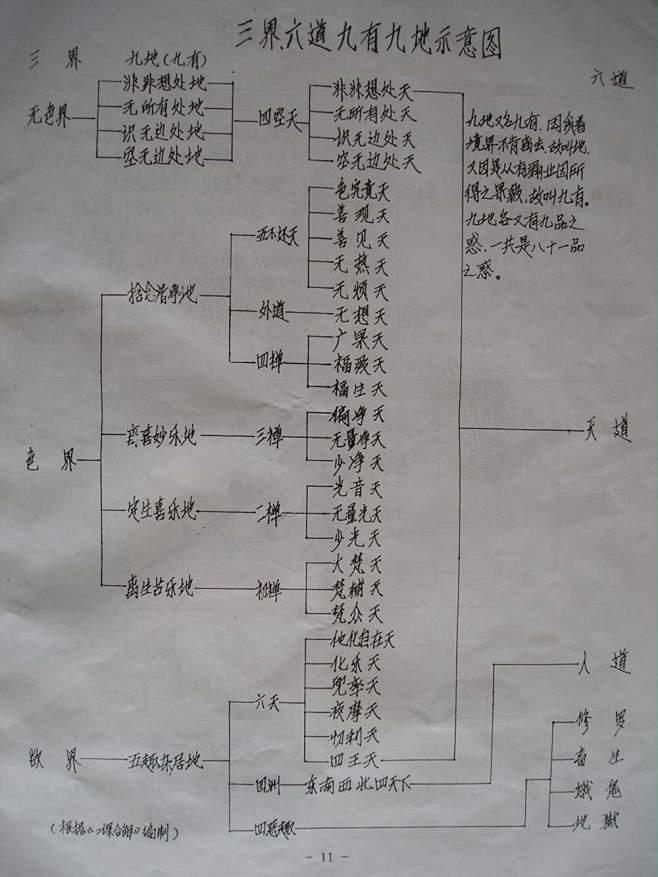 三界六道九有九地示意图
三 界 九地(九有) 六道
无色界 非非想处地 四空天 非非想处天
无所有处地 无所有处天
识无边处地 识无边处天
空无边处地 空无边处天
九地又名九有,因各着
境界不肯离去,故叫地,
又因是从有漏业因所
得之果报,故叫九有。
九地各又有九品之
惑,一共是八十一品
之惑。
色究竟天
善现天
五不还天 善见天
无热天
无烦天
捨念清净地 外道 无想天
广果天
四禅 福爱天
福生天
偏净天
离喜妙乐地 三禅 无量净天
少净天
天道
色 界
光音天
定生喜乐地 二禅 无量光天
少光天
大梵天
离生喜乐地 初禅 梵辅天
梵众天
他化自在天
化乐天
六天 兜率天
夜摩天
忉利天
四王天
人 道
欲 界 五趣杂居地
四洲 东南西北四天下
四恶趣
修 罗
畜 生
饿 鬼
地 狱
(根据《二课合解》编制)
- 11 -